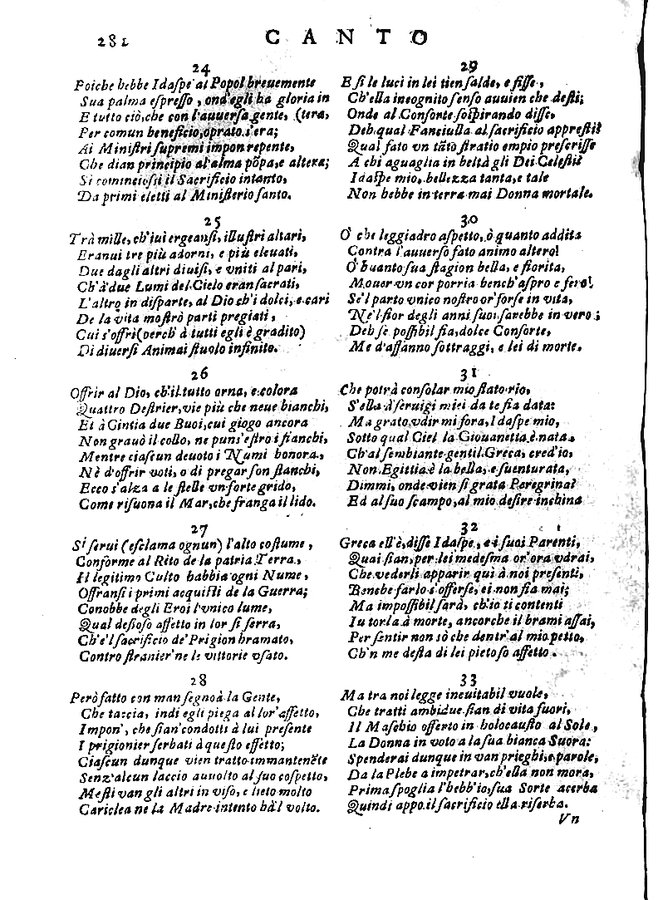 282
CANTO
24
Poiche hebbe Idaspe al Popol breuemente
Sua palma espresso, ond'egli ha gloria in
E tutto ciò, che con l'auuersa gente, (tera,
Per comun beneficio, oprato s'era;
Ai Ministri supremi impon repente,
Che dian principio al'alma põpa, e altera;
Si cominciosii il Sacrificio intanto,
Da primi eletti al Ministerio santo.
25
Trà mille, ch'iui ergeansi, illustri altari,
Eranui tre più adorni, e più eleuati,
Due dagli altri diuisi, e vniti al pari,
Ch'à due Lumi del Cielo eran sacrati,
L'altro in disparte, al Dio ch'i dolci, e cari
De la vita mostrò parti pregiati,
Cui s'offri (perch' à tutti egli è gradito)
Di diuersi Animai stuolo infinito.
26
Offrir al Dio, ch'il tutto orna, e colora
Quattro Destrier, vie più che neue bianchi,
Et à Cintia due Buoi, cui giogo ancora
Non grauò il collo, ne puns'estro i fianchi,
Mentre ciascun deuoto i Numi honora,
Nè d'offrir voti, o di pregar son stanchi,
Ecco s'alza a le stelle vn forte grido,
Come risuona il Mar, che franga il lido.
27
Si serui (esclama ognun) l'alto costume,
Conforme al Rito de la patria Terra,
Il legitimo Culto habbia ogni Nume,
Offransi i primi acquisti de la Guerra;
Conobbe degli Eroi l'vnico lume,
Qual desioso affetto in lor si serra,
Ch'è'l sacrificio de' Prigion bramato,
Contro stranier' ne le vittorie vsato.
28
Però fatto con man segno à la Gente,
Che taccia, indi egli piega al lor' affetto,
Impon', che sian' condotti à lui presente
I prigionier serbati à questo effetto;
Ciascun dunque vien tratto immantenēte
Senz'alcun laccio auuolto al suo cospetto,
Mesti van gli altri in viso, e lieto molto
Cariclea ne la Madre intento hà'l volto.
29
E si le luci in lei tien salde, e fisse,
Ch'ella incognito senso auuien che desti;
Onde al Consorte sospirando disse,
Deh qual Fanciulla al sacrificio appresti!
Qual fato vn tāto stratio empio prescrisse
A chi aguaglia in beltà gli Dei Celesti!
Idaspe mio, bellezza tanta, e tale
Non hebbe in terra mai Donna mortale.
30
O che leggiadro aspetto, ò quanto addita
Contra l'auuerso fato animo altero!
O quanto sua stagion bella, e fiorita,
Mouer vn cor porria bench'aspro e fero!
Se'l parto vnico nostro or' forse in vita,
Ne'l fior degli anni suoi sarebbe in vero;
Deh se possibil fia, dolce Consorte,
Me d'affanno sottraggi, e lei di morte.
31
Che potrà consolar mio stato rio,
S'ella à seruigi miei da te fia data:
Ma grato, vdir mi fora, Idaspe mio,
Sotto qual Ciel la Giouanetta è nata.
Ch'al sembiante gentil Greca, cred'io,
Non Egittia è la bella, e suenturata,
Dimmi, onde vien si grata Peregrina?
Ed al suo scampo, al mio desire inchina
32
Greca ell'è, disse Idaspe, e i suoi Parenti,
Quai sian, per lei medesma or' ora vdrai,
Che vederli apparir qui à noi presenti,
Benche farlo s'offerse, ei non fia mai;
Ma impossibil sarà, ch'io ti contenti
In torla à morte, ancorche il brami assai,
Per sentir non sò che dentr' al mio petto,
Ch'n me desta di lei pietoso affetto.
33
Ma tra noi legge ineuitabil vuole,
Che tratti ambidue sian di vita fuori,
Il Maschio offerto in holocausto al Sole,
La Donna in voto a la sua bianca Suora:
Spenderai dunque in van prieghi, e parole,
Da la Plebe a impetrar, ch'ella non mora,
Prima spoglia l'hebb'io, sua Sorte acerba
Quindi appo il sacrificio ella riserba.
Vn